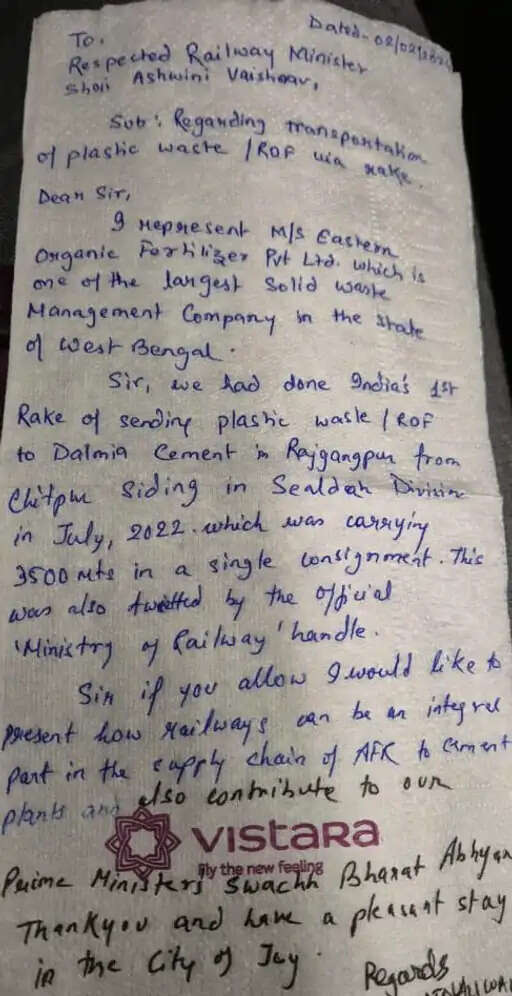 Dated- 02/02/
To,
Respected Railway Minister
Shri Ashwini Vaishnav,
Sub: Regarding transportation
of plastic waste / RDF via rake.
Dear Sir,
I represent M/s Eastern
Organic Fertilizer Pvt Ltd. which is
one of the largest Solid waste
Management Company in the state
of West Bengal.
Sir, we had done India's 1st
Rake of sending plastic waste / RDF
to Dalmia Cement in Rajgangpur from
Chitpur Siding in Sealdah Division
in July, 2022. which was carrying
3500 mts in a single consignment. This
was also twitted by the official
'Ministry of Railway' handle.
Sir if you allow I would like to
present how railways can be an integral
part in the supply chain of AFR to cement
plants and also contribute to our
VISTARA
fly the new feeling
Prime Ministers Swachh Bharat Abhyan
Thankyou and have a pleasant stay
in the City of Joy.
Regards